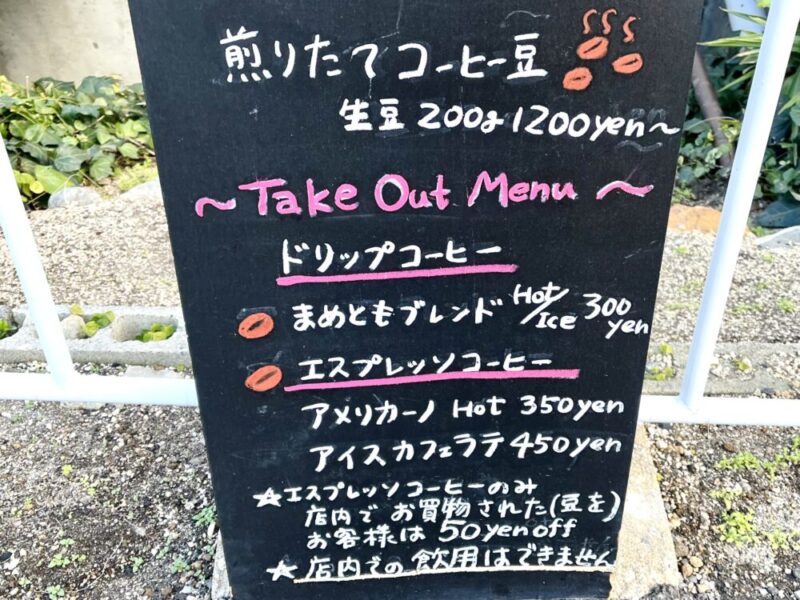 煎りたてコーヒー豆
生豆 200g 1200yen～
～Take Out Menu～
ドリップコーヒー
まめともブレンド Hot/Ice 300yen
エスプレッソコーヒー
アメリカーノ Hot 350yen
アイスカフェラテ 450yen
☆エスプレッソコーヒーのみ
店内でお買物された(豆を)
お客様は 50yen off
☆店内での飲用はできません